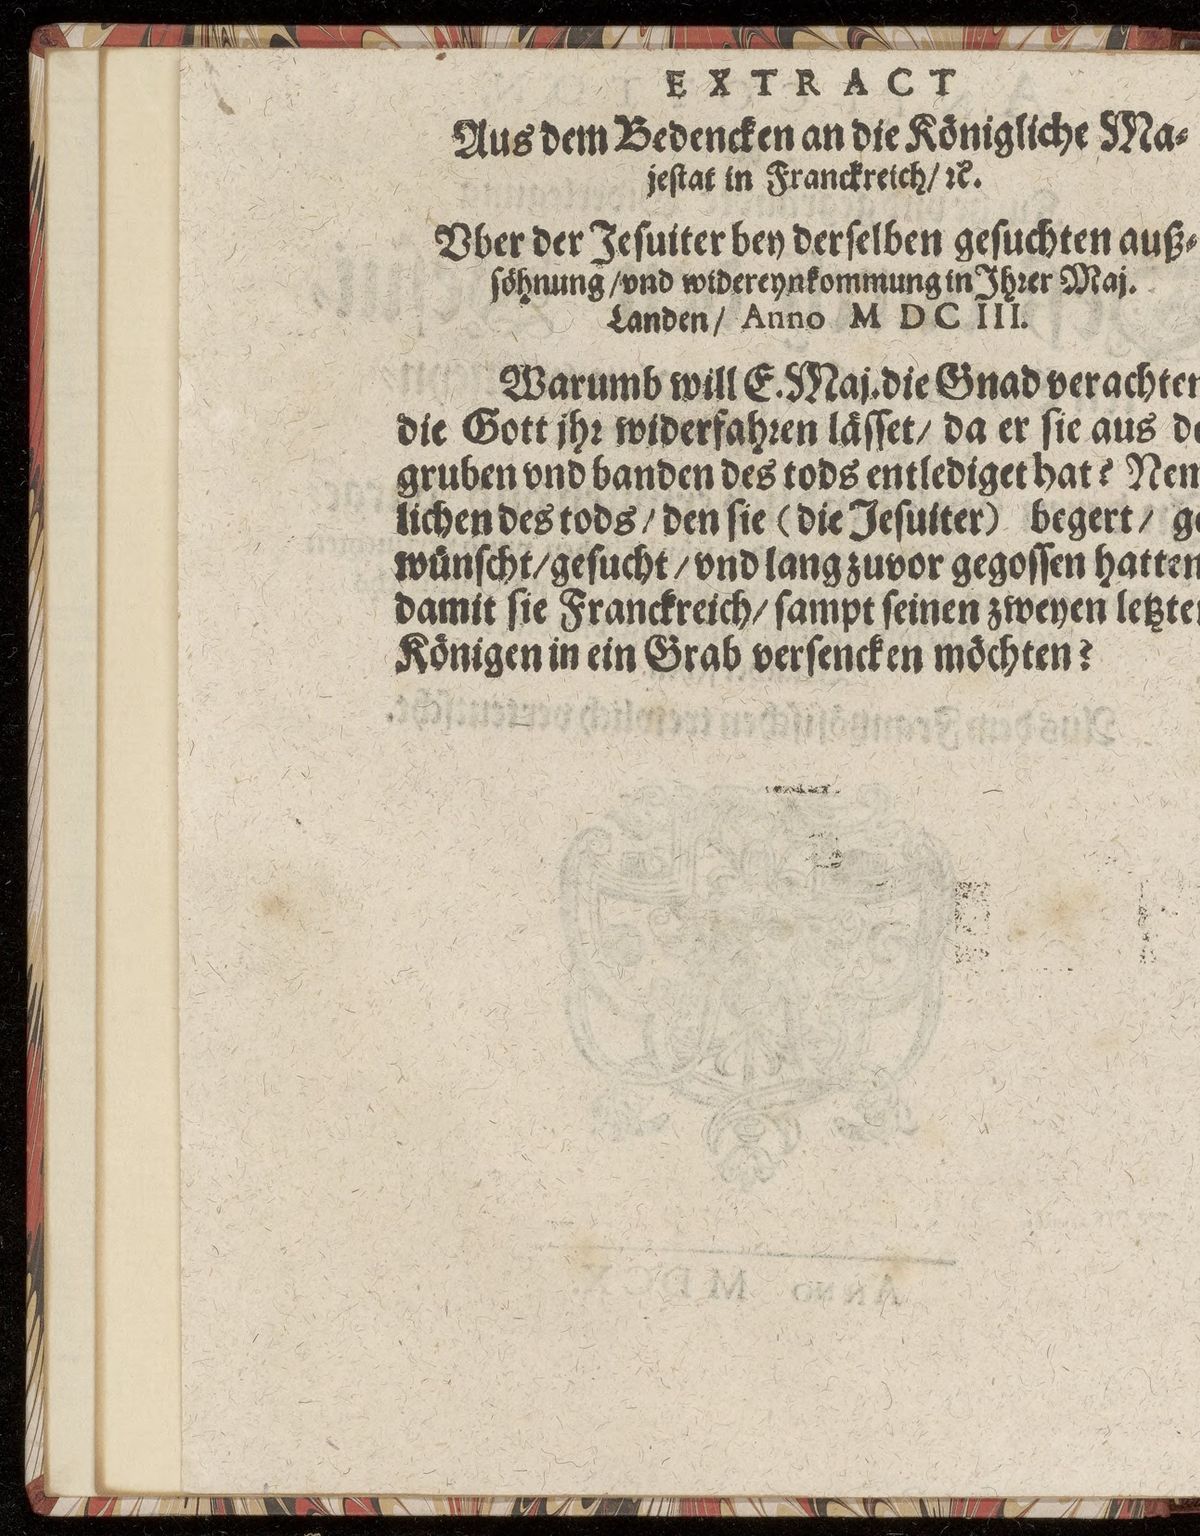 EXTRACT
Aus dem Bedencken an die Königliche Ma-
jestat in Franckreich/ ꝛc.
Vber der Jesuiter bey derselben gesuchten auß-
söhnung/ vnd widereynkommung in Jhrer Maj.
Landen/ Anno M DC III.
Warumb will E. Maj. die Gnad verachten
die Gott jhr widerfahren lässet/ da er sie aus de
gruben vnd banden des tods entlediget hat? Nem
lichen des tods/ den sie (die Jesuiter) begert/ ge
wünscht/ gesucht/ vnd lang zuvor gegossen hatten
damit sie Franckreich/ sampt seinen zweyen letzten
Königen in ein Grab versencken möchten?
Aus dem Frantzösischen trewlich verteutscht.
ANNO MDCX.